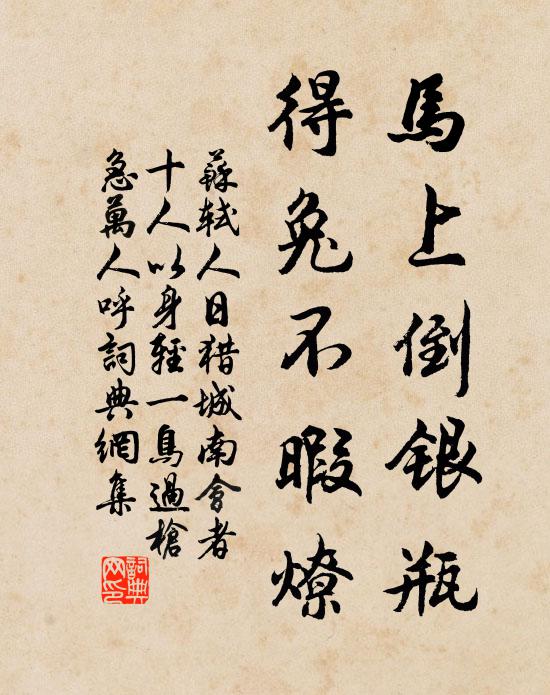 馬上倒銀瓶
得兔不暇燎
蘇軾人日猎城南會者
十人以身輕一鳥過槍
急萬人呼詞典網集
詞典
网印